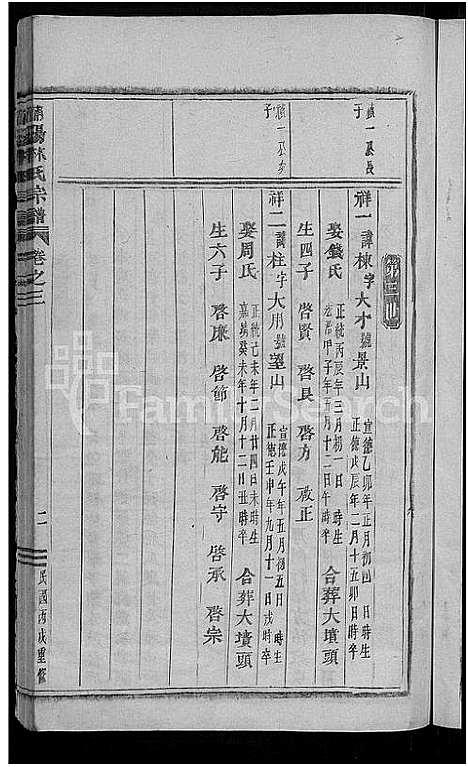 第三世
禎一公長子
祥一諱棟字大才號景山 宣德乙卯年正月初四日時生
正德戊辰年二月十五卯日時卒
娶錢氏 正統丙辰年三月初一日時生
弘治甲子年五月十二日午時卒 合葬大墳頭
生四子 啓賢 啓良 啓方 啟正
禎一公次子
祥二諱柱字大用號望山 宣德戊午年五月初五日時生
正德壬申年九月十一日戌時卒
娶周氏 正統己未年二月廿四日未時生
嘉靖癸未年十月十二日丑時卒 合葬大墳頭
生六子 啓康 啓節 啓能 啓守 啓承 啓宗
林氏宗譜 卷之三
二
民國丙戌重修
FamilySearch